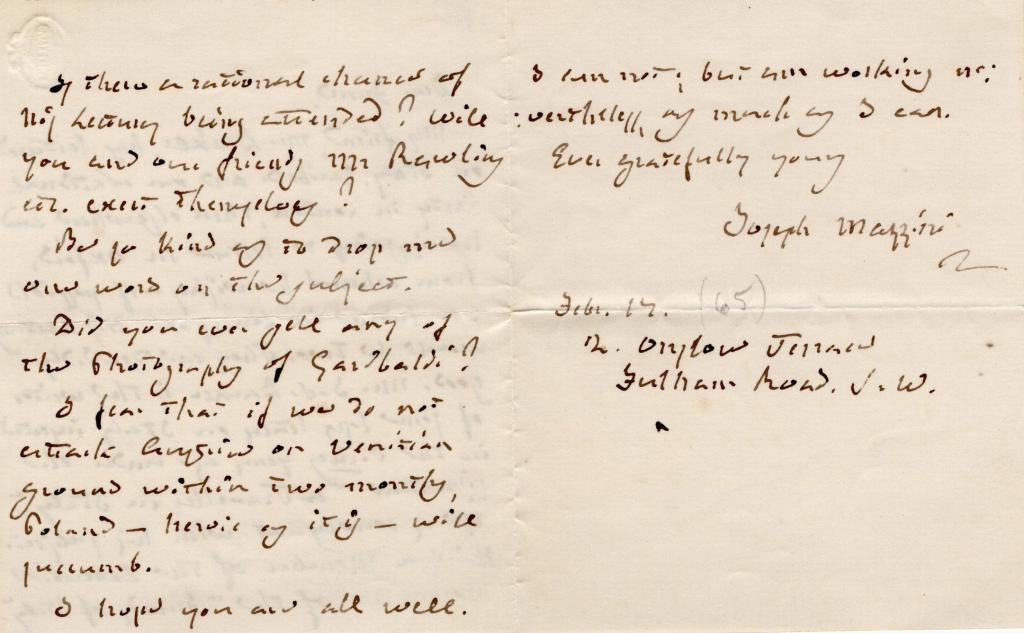 Is there a rational chance of
his lecturing being attended? Will
you and our friends Mr Rawlins
etc. exert themselves?
Be so kind as to drop me
one word on the subject.
Did you ever sell any of
the Photographs of Garibaldi?
I fear that if we do not
attack Austria on Venetian
ground within two months,
Poland — heroic as it is — will
succumb.
I hope you are all well.
I am not; but am working ne:
:vertheless, as much as I can.
Ever gratefully yours
Joseph Mazzini
Febr. 17. (65)
2. Onslow Terrace
Fulham Road. S.W.